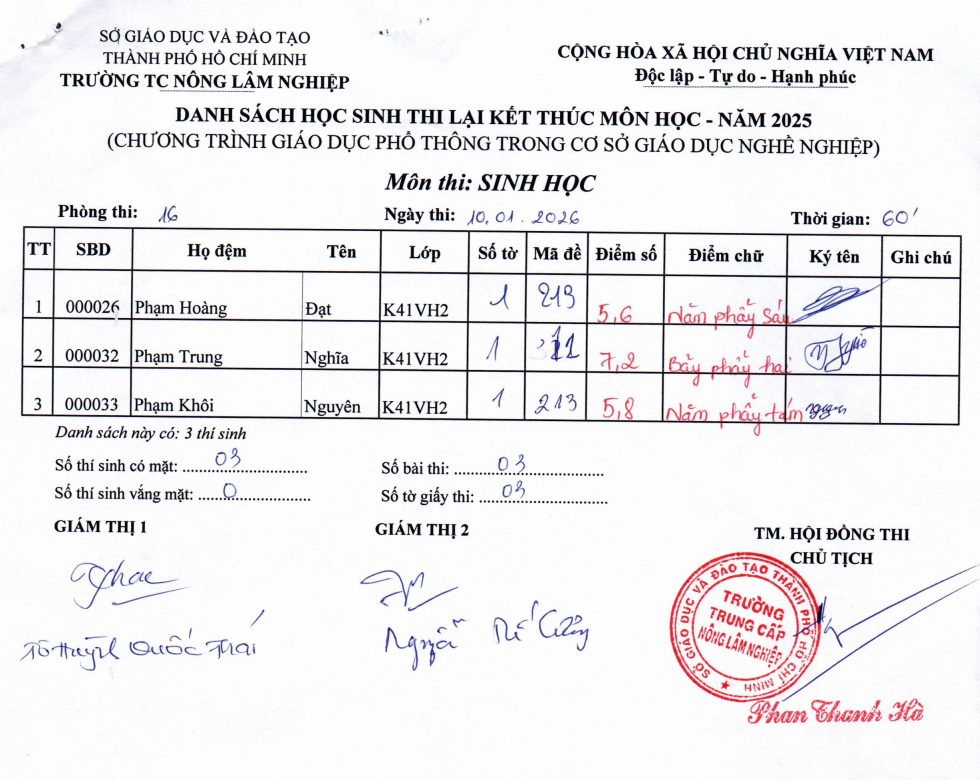 SỞ GIÁO DỤC VÀ ĐÀO TẠO
THÀNH PHỐ HỒ CHÍ MINH
TRƯỜNG TC NÔNG LÂM NGHIỆP
CỘNG HÒA XÃ HỘI CHỦ NGHĨA VIỆT NAM
Độc lập - Tự do - Hạnh phúc
DANH SÁCH HỌC SINH THI LẠI KẾT THÚC MÔN HỌC - NĂM 2025
(CHƯƠNG TRÌNH GIÁO DỤC PHỔ THÔNG TRONG CƠ SỞ GIÁO DỤC NGHỀ NGHIỆP)
Môn thi: SINH HỌC
Phòng thi: 16 Ngày thi: 10.01.2026 Thời gian: 60'
TT SBD Họ đệm Tên Lớp Số tờ Mã đề Điểm số Điểm chữ Ký tên Ghi chú
1 000026 Phạm Hoàng Đạt K41VH2 1 213 5,6 Năm phẩy Sáu
2 000032 Phạm Trung Nghĩa K41VH2 1 7,2 Bảy phẩy hai
3 000033 Phạm Khôi Nguyên K41VH2 1 213 5,8 Năm phẩy tám
Danh sách này có: 3 thí sinh
Số thí sinh có mặt: ....03....
Số bài thi: ....03....
Số thí sinh vắng mặt: ....0....
Số tờ giấy thi: ....03....
GIÁM THỊ 1
GIÁM THỊ 2
TM. HỘI ĐỒNG THI
CHỦ TỊCH
Tô Huỳnh Quốc Thái
Nguyễn
SỞ GIÁO DỤC VÀ ĐÀO TẠO THÀNH PHỐ HỒ CHÍ MINH
TRƯỜNG
TRUNG CẤP
NÔNG LÂM NGHIỆP
Phan Thanh Hà